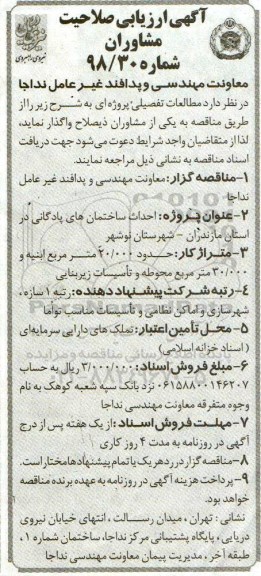 آگهی ارزیابی صلاحیت
مشاوران
شماره ۹۸/۳۰
معاونت مهندسی و پدافند غیر عامل نداجا
در نظر دارد مطالعات تفصیلی پروژه ای به شرح زیر را از
طریق مناقصه به یکی از مشاوران ذیصلاح واگذار نماید،
لذا از متقاضیان واجد شرایط دعوت می‌شود جهت دریافت
اسناد مناقصه به نشانی ذیل مراجعه نمایند.
۱-مناقصه گزار: معاونت مهندسی و پدافند غیر عامل
نداجا
۲-عنوان پروژه: احداث ساختمان های پادگانی در
استان مازندران - شهرستان نوشهر
۳-متراژ کار: حدود ۲۰/۰۰۰ متر مربع ابنیه و
۳۰/۰۰۰ متر مربع محوطه و تأسیسات زیربنایی
۴-رتبه شرکت پیشنهاد دهنده: رتبه ۱ سازه،
شهرسازی و اماکن نظامی و تأسیسات مناسب تواما
۵-محل تأمین اعتبار: تملک های دارایی سرمایه‌ای
(اسناد خزانه اسلامی)
۶-مبلغ فروش اسناد: ۳/۰۰۰/۰۰۰ ریال به حساب
نزد بانک سپه شعبه کوهک به نام
وجوه متفرقه معاونت مهندسی نداجا
۷-مهلت فروش اسناد: از یک هفته پس از درج
آگهی در روزنامه به مدت ۴ روز کاری
۸-مناقصه گزار در رد هر یک یا تمام پیشنهادها مختار است.
۹-پرداخت هزینه آگهی در روزنامه به عهده برنده مناقصه
خواهد بود.
نشانی: تهران، میدان رسالت، انتهای خیابان نیروی
دریایی، پایگاه پشتیبانی مرکز نداجا، ساختمان شماره ۱،
طبقه آخر، مدیریت پیمان معاونت مهندسی نداجا